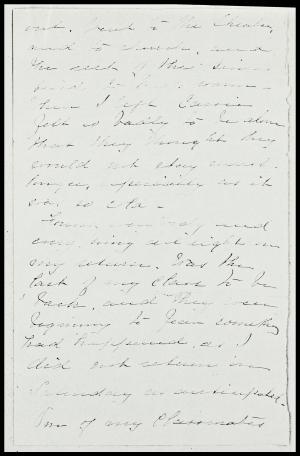 out. Went to the theatre,
and to church, and
the rest of the time
tried to keep warm.
When I left Carrie
felt so badly to be alone
that they thought they
could not stay much
longer, especially as it
was so cold.
Found everything and
every thing all right on
my return. Was the
last of my class to be
back, and they were
beginning to fear something
had happened, as I
did not return on
Saturday as anticipated.
of my Classmates